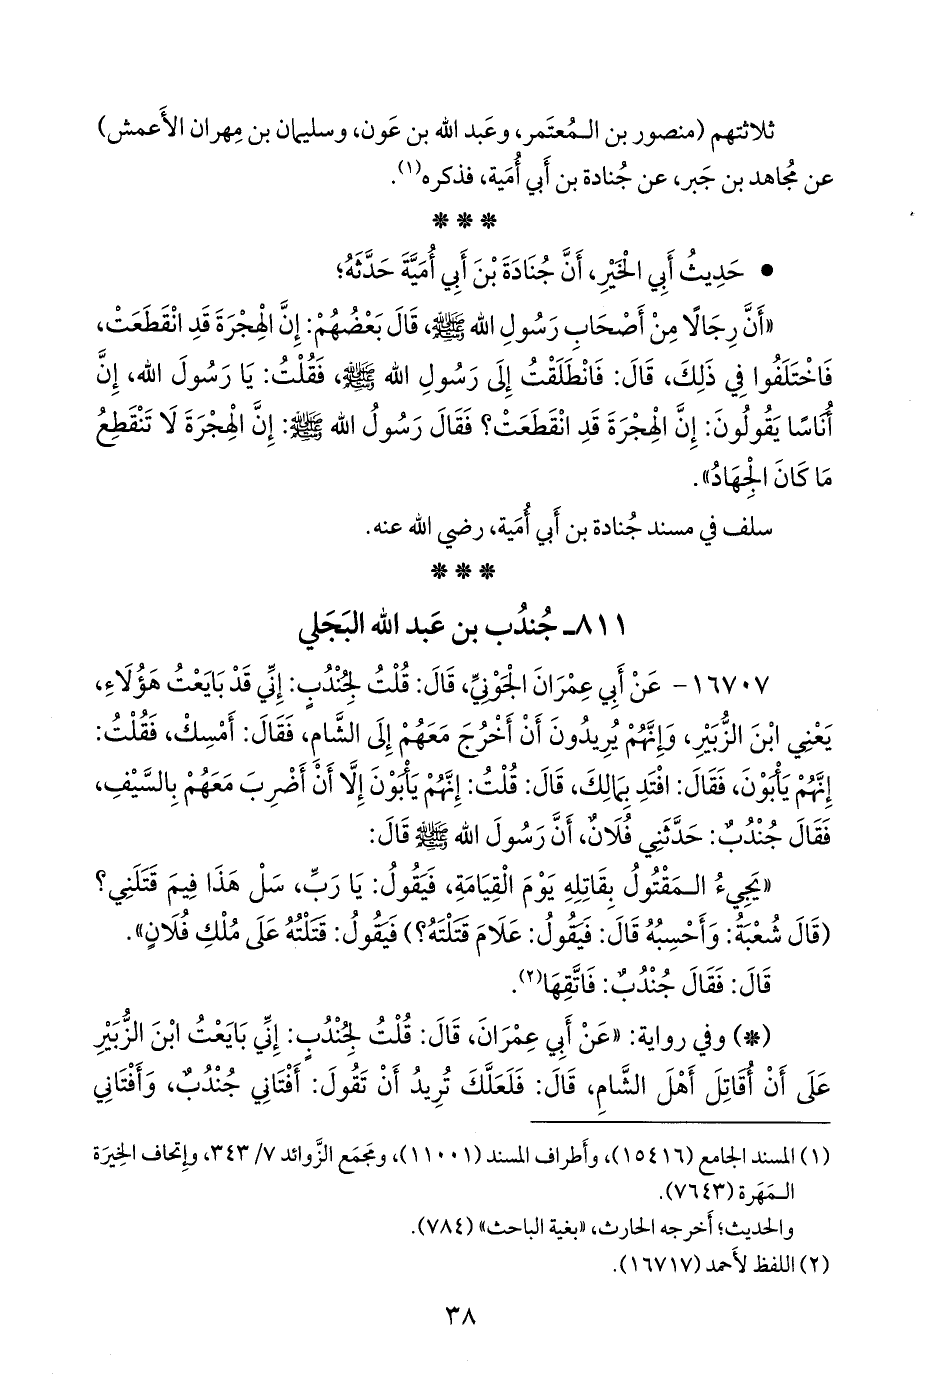 ثلاثتهم (منصور بن الـمُعتَمر، وعَبد الله بن عَون، وسليمان بن مِهران الأَعمش)
عن مُجاهد بن جَبر، عن جُنادة بن أَبي أُمَية، فذكره(١).
* * *
• حَدِيثُ أَبِي الْخَيْرِ، أَنَّ جُنَادَةَ بْنَ أَبِي أُمَيَّةَ حَدَّثَهُ؛
«أَنَّ رِجَالًا مِنْ أَصْحَابِ رَسُولِ الله ﷺ، قَالَ بَعْضُهُمْ: إِنَّ الْهِجْرَةَ قَدِ انْقَطَعَتْ،
فَاخْتَلَفُوا فِي ذَلِكَ، قَالَ: فَانْطَلَقْتُ إِلَى رَسُولِ الله ﷺ، فَقُلْتُ: يَا رَسُولَ الله، إِنَّ
أُنَاسًا يَقُولُونَ: إِنَّ الْهِجْرَةَ قَدِ انْقَطَعَتْ؟ فَقَالَ رَسُولُ الله ﷺ: إِنَّ الْهِجْرَةَ لَا تَنْقَطِعُ
مَا كَانَ الْجِهَادُ».
سلف في مسند جُنادة بن أَبي أُمَية، رضي الله عنه.
* * *
٨١١ـ جُندُب بن عَبد الله البَجَلي
١٦٧٠٧- عَنْ أَبِي عِمْرَانَ الْجَوْنِيِّ، قَالَ: قُلْتُ لِجُنْدُبٍ: إِنِّي قَدْ بَايَعْتُ هَؤُلَاءِ،
يَعْنِي ابْنَ الزُّبَيْرِ، وَإِنَّهُمْ يُرِيدُونَ أَنْ أَخْرُجَ مَعَهُمْ إِلَى الشَّامِ، فَقَالَ: أَمْسِكْ، فَقُلْتُ:
إِنَّهُمْ يَأْبَوْنَ، فَقَالَ: افْتَدِ بِمَالِكَ، قَالَ: قُلْتُ: إِنَّهُمْ يَأْبَوْنَ إِلَّا أَنْ أَضْرِبَ مَعَهُمْ بِالسَّيْفِ،
فَقَالَ جُنْدُبٌ: حَدَّثَنِي فُلَانٌ، أَنَّ رَسُولَ الله ﷺ قَالَ:
«يَجِيءُ الـمَقْتُولُ بِقَاتِلِهِ يَوْمَ الْقِيَامَةِ، فَيَقُولُ: يَا رَبِّ، سَلْ هَذَا فِيمَ قَتَلَنِي؟
(قَالَ شُعْبَةُ: وَأَحْسِبُهُ قَالَ: فَيَقُولُ: عَلَامَ قَتَلْتَهُ؟) فَيَقُولُ: قَتَلْتُهُ عَلَى مُلْكِ فُلَانٍ».
قَالَ: فَقَالَ جُنْدُبٌ: فَاتَّقِهَا(٢).
(*) وفي رواية: «عَنْ أَبِي عِمْرَانَ، قَالَ: قُلْتُ لِجُنْدُبٍ: إِنِّي بَايَعْتُ ابْنَ الزُّبَيْرِ
عَلَى أَنْ أُقَاتِلَ أَهْلَ الشَّامِ، قَالَ: فَلَعَلَّكَ تُرِيدُ أَنْ تَقُولَ: أَفْتَانِي جُنْدُبٌ، وَأَفْتَانِي
(١) المسند الجامع (١٥٤١٦)، وأطراف المسند (١١٠٠١)، ومَجمَع الزَّوائد ٧/ ٣٤٣، وإتحاف الخِيرَة
الـمَهَرة (٧٦٤٣).
والحديث؛ أخرجه الحارث، «بغية الباحث» (٧٨٤).
(٢) اللفظ لأَحمد (١٦٧١٧).
٣٨